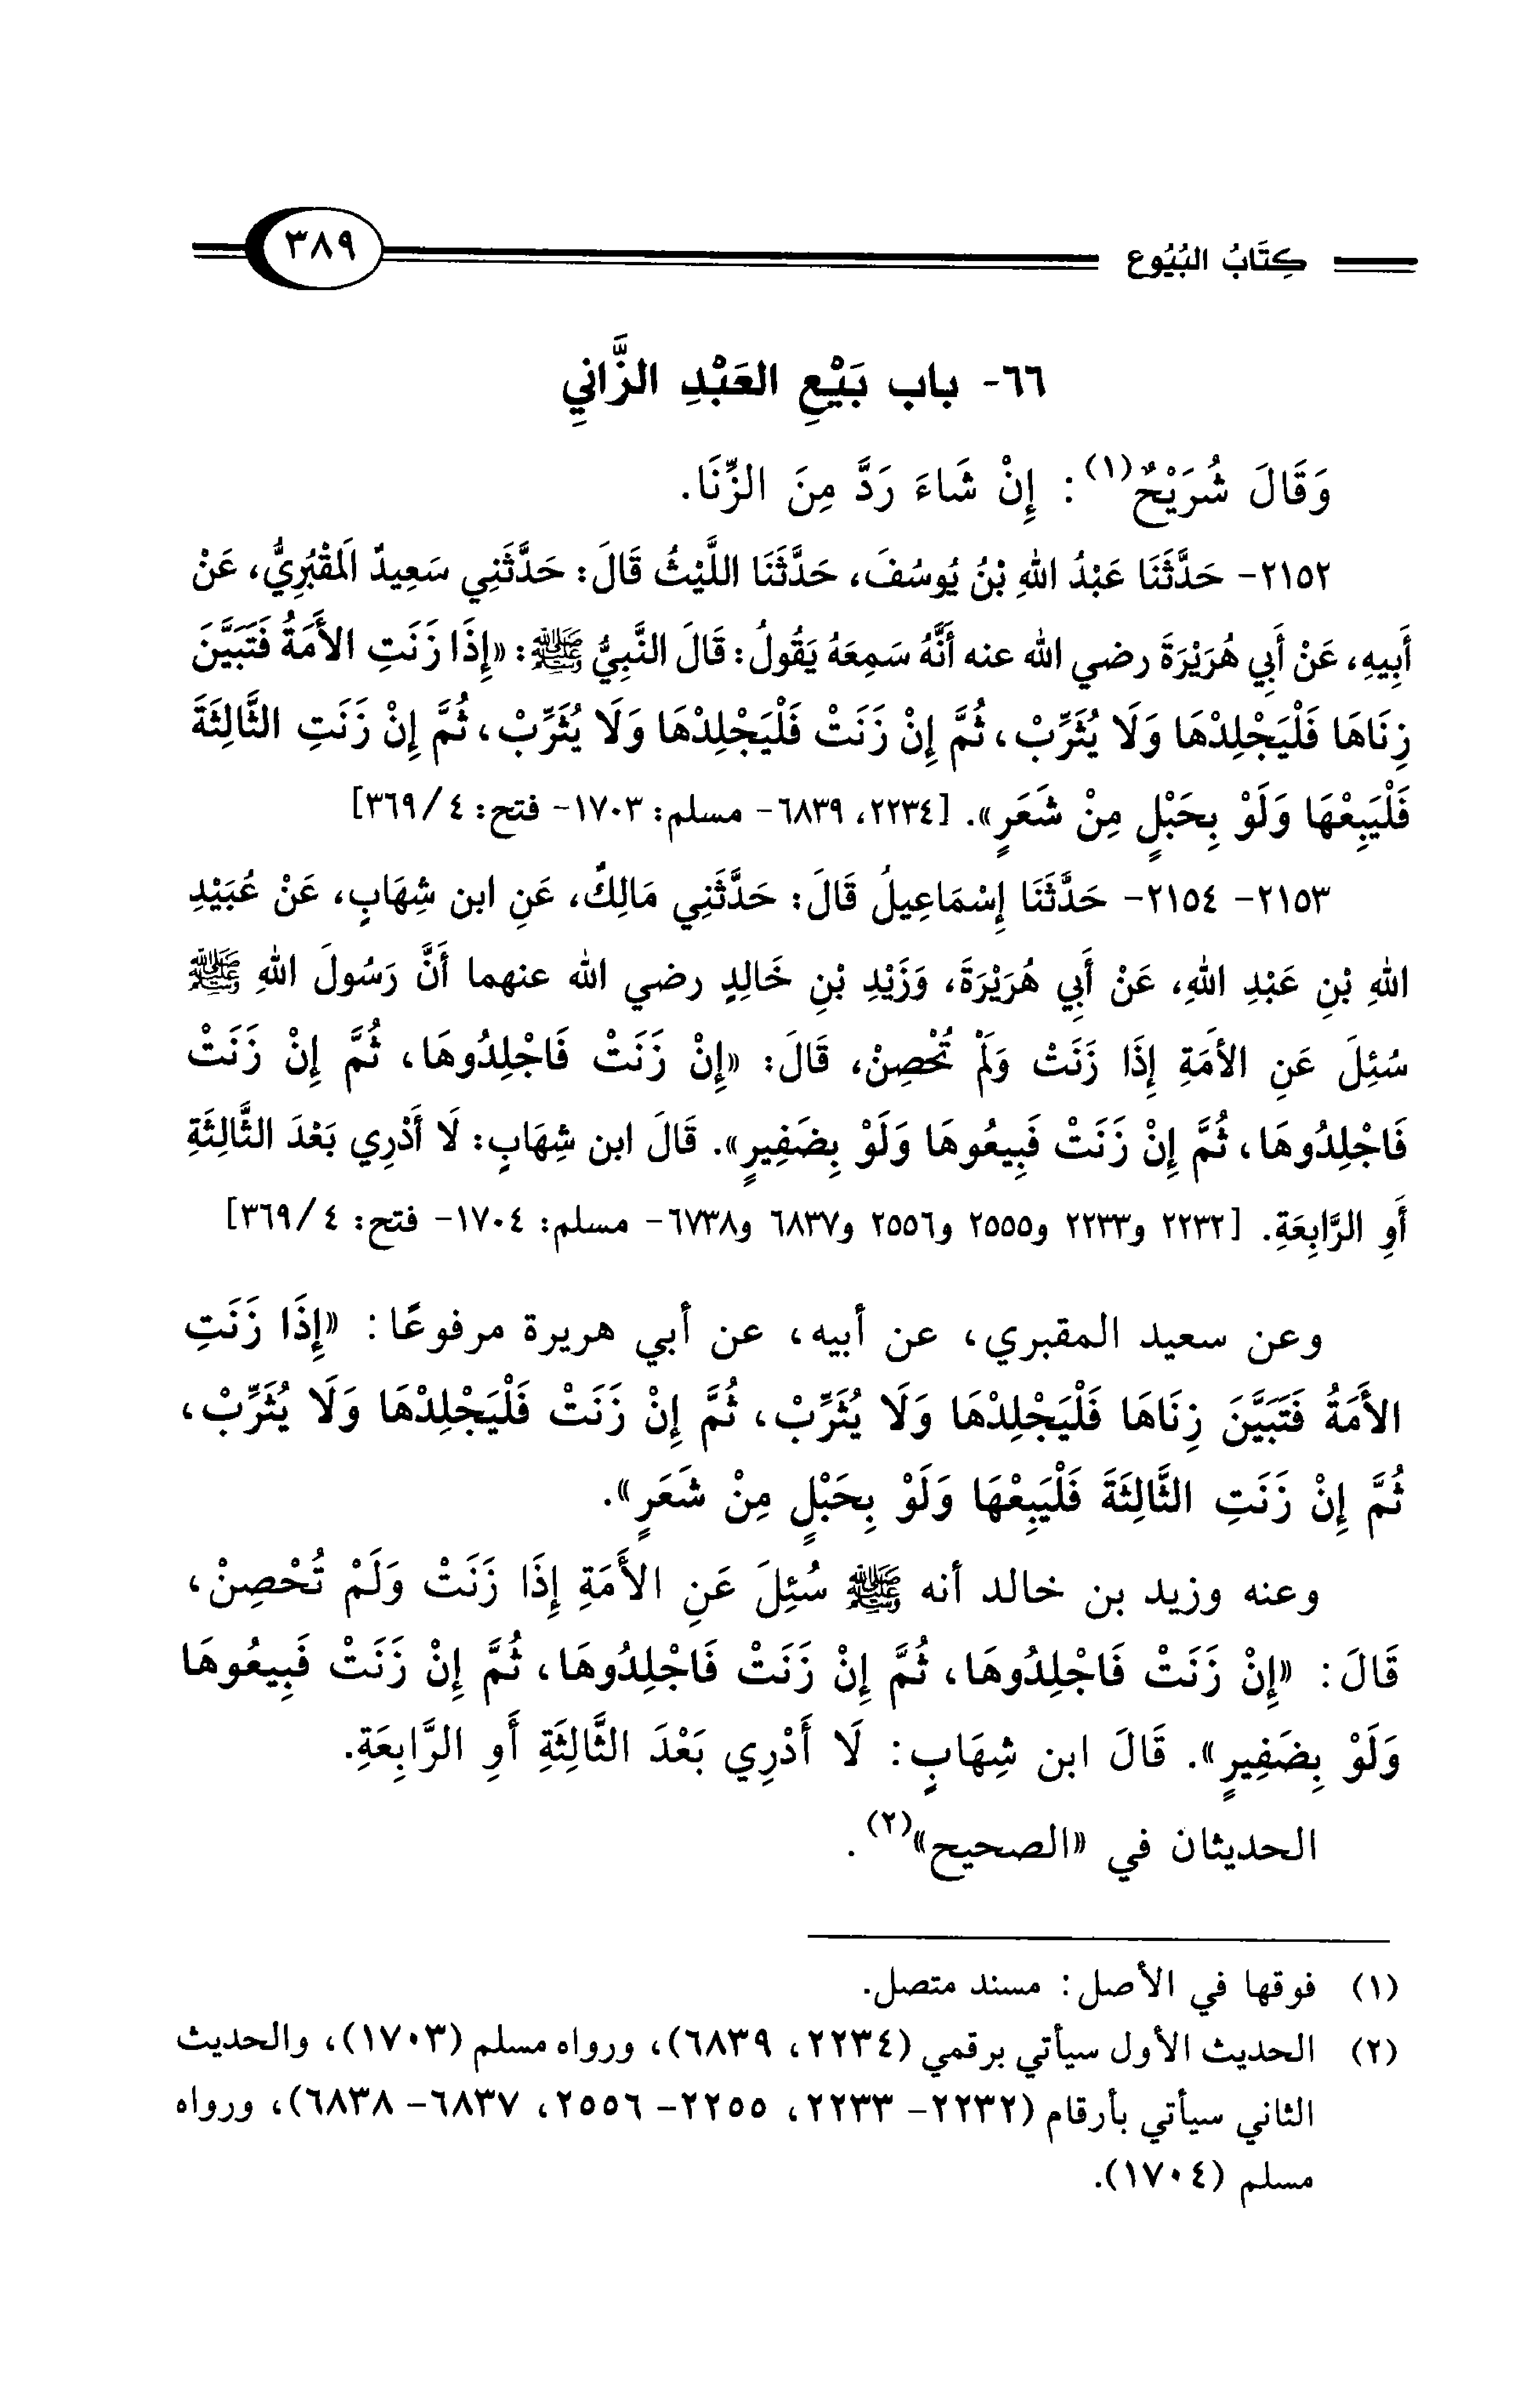 كِتَابُ البُيُوع ٣٨٩
٦٦- باب بَيْعِ العَبْدِ الزَّانِي
وَقَالَ شُرَيْحٌ(١): إِنْ شَاءَ رَدَّ مِنَ الزِّنَا.
٢١٥٢- حَدَّثَنَا عَبْدُ اللهِ بْنُ يُوسُفَ، حَدَّثَنَا اللَّيْثُ قَالَ: حَدَّثَنِي سَعِيدٌ المَقْبُرِيُّ، عَنْ
أَبِيهِ، عَنْ أَبِي هُرَيْرَةَ رضي الله عنه أَنَّهُ سَمِعَهُ يَقُولُ: قَالَ النَّبِيُّ ﷺ: «إِذَا زَنَتِ الأَمَةُ فَتَبَيَّنَ
زِنَاهَا فَلْيَجْلِدْهَا وَلَا يُثَرِّبْ، ثُمَّ إِنْ زَنَتْ فَلْيَجْلِدْهَا وَلَا يُثَرِّبْ، ثُمَّ إِنْ زَنَتِ الثَّالِثَةَ
فَلْيَبِعْهَا وَلَوْ بِحَبْلٍ مِنْ شَعَرٍ». [٢٢٣٤، ٦٨٣٩- مسلم: ١٧٠٣- فتح: ٤/ ٣٦٩]
٢١٥٣- ٢١٥٤- حَدَّثَنَا إِسْمَاعِيلُ قَالَ: حَدَّثَنِي مَالِكٌ، عَنِ ابن شِهَابٍ، عَنْ عُبَيْدِ
اللهِ بْنِ عَبْدِ اللهِ، عَنْ أَبِي هُرَيْرَةَ، وَزَيْدِ بْنِ خَالِدٍ رضي الله عنهما أَنَّ رَسُولَ اللهِ ﷺ
سُئِلَ عَنِ الأَمَةِ إِذَا زَنَتْ وَلَمْ تُحْصِنْ، قَالَ: «إِنْ زَنَتْ فَاجْلِدُوهَا، ثُمَّ إِنْ زَنَتْ
فَاجْلِدُوهَا، ثُمَّ إِنْ زَنَتْ فَبِيعُوهَا وَلَوْ بِضَفِيرٍ». قَالَ ابن شِهَابٍ: لَا أَدْرِي بَعْدَ الثَّالِثَةِ
أَوِ الرَّابِعَةِ. [٢٢٣٢ و٢٢٣٣ و٢٥٥٥ و٢٥٥٦ و٦٨٣٧ و٦٧٣٨- مسلم: ١٧٠٤- فتح: ٤/ ٣٦٩]
وعن سعيد المقبري، عن أبيه، عن أبي هريرة مرفوعًا: «إِذَا زَنَتِ
الأَمَةُ فَتَبَيَّنَ زِنَاهَا فَلْيَجْلِدْهَا وَلَا يُثَرِّبْ، ثُمَّ إِنْ زَنَتْ فَلْيَجْلِدْهَا وَلَا يُثَرِّبْ،
ثُمَّ إِنْ زَنَتِ الثَّالِثَةَ فَلْيَبِعْهَا وَلَوْ بِحَبْلٍ مِنْ شَعَرٍ».
وعنه وزيد بن خالد أنه ﷺ سُئِلَ عَنِ الأَمَةِ إِذَا زَنَتْ وَلَمْ تُحْصِنْ،
قَالَ: «إِنْ زَنَتْ فَاجْلِدُوهَا، ثُمَّ إِنْ زَنَتْ فَاجْلِدُوهَا، ثُمَّ إِنْ زَنَتْ فَبِيعُوهَا
وَلَوْ بِضَفِيرٍ». قَالَ ابن شِهَابٍ: لَا أَدْرِي بَعْدَ الثَّالِثَةِ أَوِ الرَّابِعَةِ.
الحديثان في «الصحيح»(٢).
(١) فوقها في الأصل: مسند متصل.
(٢) الحديث الأول سيأتي برقمي (٢٢٣٤، ٦٨٣٩)، ورواه مسلم (١٧٠٣)، والحديث
الثاني سيأتي بأرقام (٢٢٣٢- ٢٢٣٣، ٢٢٥٥- ٢٥٥٦، ٦٨٣٧- ٦٨٣٨)، ورواه
مسلم (١٧٠٤).